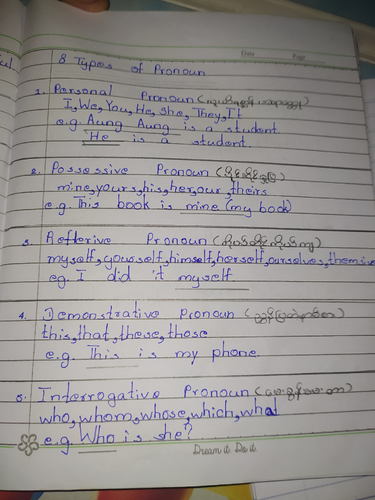 Date Page
8 Types of Pronoun
1. Personal Pronoun
I, We, You, He, She, They, It
e.g. Aung Aung is a student.
He is a student.
2. Possessive Pronoun
mine, yours, his, her, our, theirs
e.g. This book is mine (my book)
3. Pronoun
myself, himself, herself, ourselves,
eg. I did it myself.
4. Demonstrative Pronoun
this, that, these, those
e.g. This is my phone.
5. Interrogative Pronoun
who, whom, whose, which, what
e.g. Who is she?
Dream it. Do it.